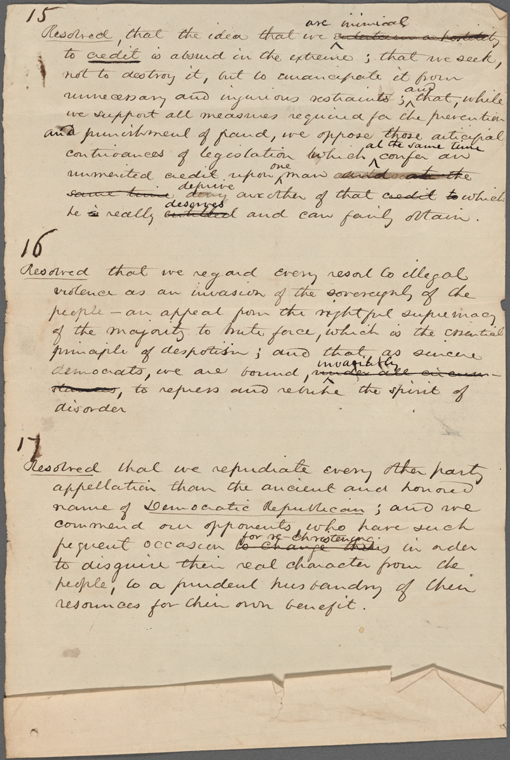 15
Resolved, that the idea that we are inimical entertain a hostility
to credit is absurd in the extreme; that we seek,
not to destroy it, but to emancipate it from
unnecessary and injurious restraints; and that, while
we support all measures required for the prevention
and punishment of fraud, we oppose those artificial
contrivances of legislation which at the same time confer an
unmerited credit upon one man and at the
same time deny deprive another of that credit to which
he is really entitled deserves and can fairly obtain.
16
Resolved that we regard every resort to illegal
violence as an invasion of the sovereignty of the
people – an appeal from the rightful supremacy
of the majority to brute force, which is the essential
principle of despotism; and that, as sincere
democrats, we are bound, invariably under all circum-
stances, to repress and rebuke the spirit of
disorder
17
Resolved that we repudiate every other party
appellation than the ancient and honored
name of Democratic Republican; and we
commend our opponents, who have such
frequent occasion for re-christening to change in order
to disguise their real character from the
people, to a prudent husbandry of their
resources for their own benefit.